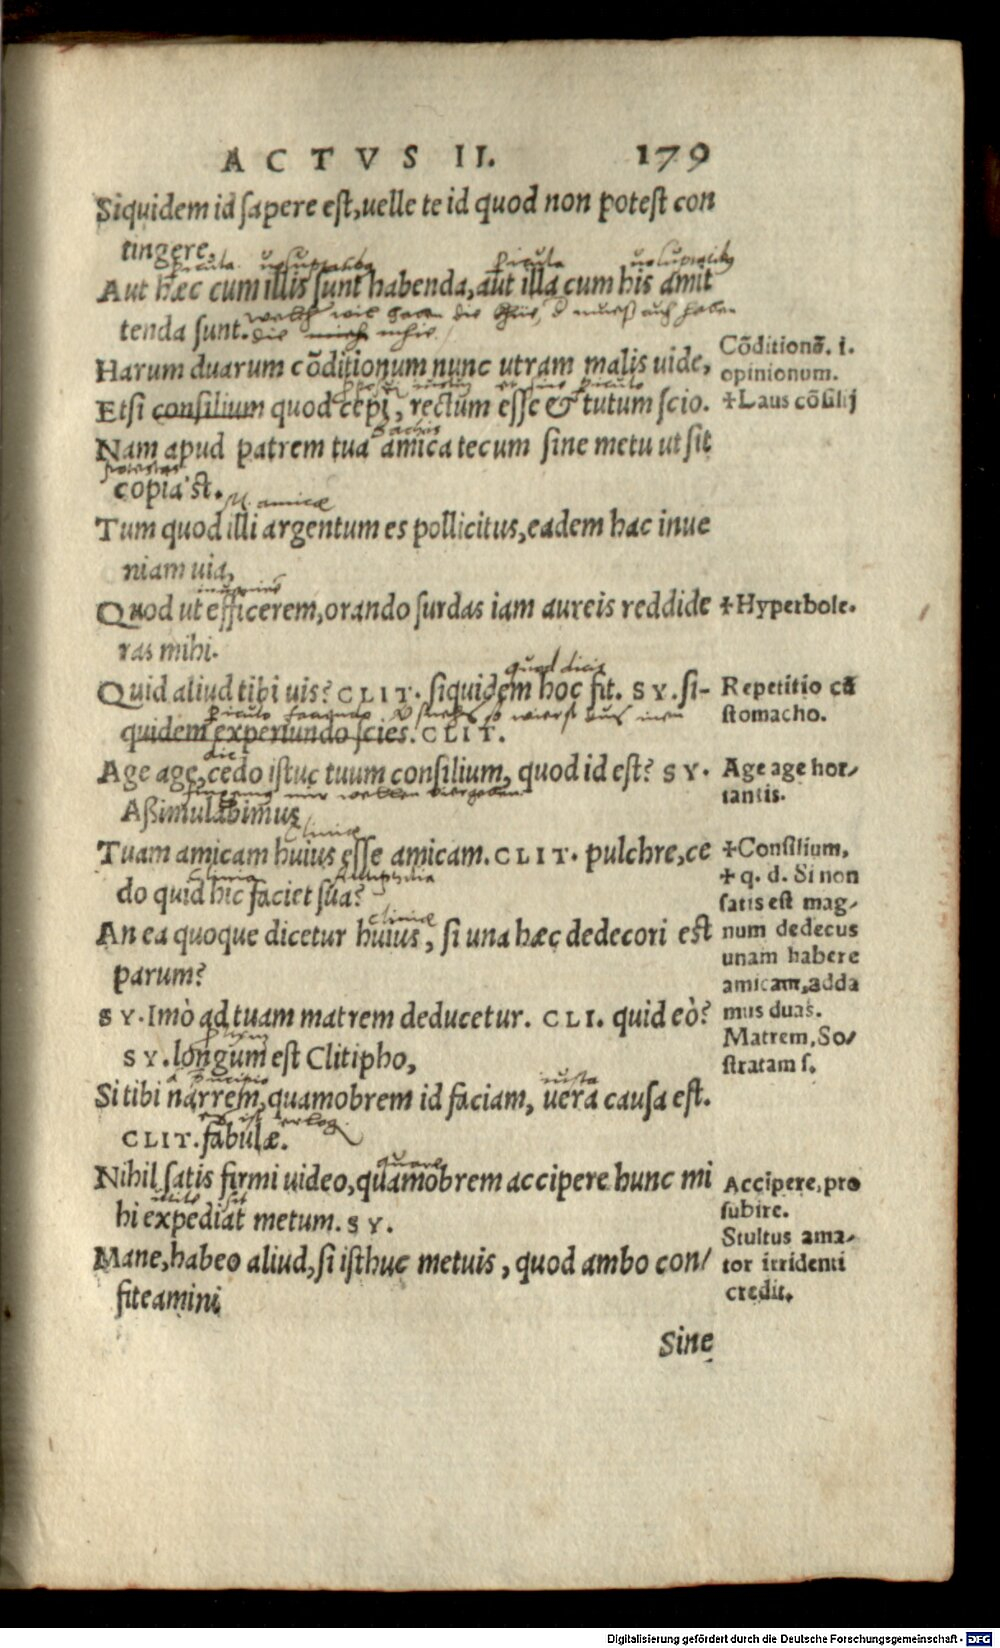 ACTVS II. 179
Siquidem id sapere est, uelle te id quod non potest con
tingere,
picula uoluptatibus picula uoluptatibus
Aut hæc cum illis sunt habenda, aut illa cum his amit
tenda sunt.
Harum duarum cõditionum nunc utram malis uide,
Cõditionũ. i.
opinionum.
Etsi consilium quod cepi, rectum esse & tutum scio.
✝Laus cõsilij
Bachis
Nam apud patrem tua amica tecum sine metu ut sit
potestas
copia'st.
s. amicæ
Tum quod illi argentum es pollicitus, eadem hac inue
niam uia,
Quod ut efficerem, orando surdas iam aureis reddide
✝Hyperbole.
ras mihi.
quod dicis
Quid aliud tibi uis? CLIT. siquidem hoc fit. SY. si-
Repetitio cũ
stomacho.
quidem experiundo scies. CLIT.
dic
Age age, cedo istuc tuum consilium, quod id est? SY.
Age age hor-
tantis.
Aßimulabimus
Cliniæ
Tuam amicam huius esse amicam. CLIT. pulchre, ce
✝Consilium,
Clinia Antiphila
do quid hic faciet sua?
✝ q. d. Si non
satis est mag-
cliniæ
An ea quoque dicetur huius, si una hæc dedecori est
num dedecus
unam habere
parum?
amicam, adda
mus duas.
SY. Imò ad tuam matrem deducetur. CLI. quid eò?
Matrem, So-
stratam s.
SY. longum est Clitipho,
a principio iusta
Si tibi narrem, quamobrem id faciam, uera causa est.
CLIT. fabulæ.
quare
Nihil satis firmi uideo, quamobrem accipere hunc mi
Accipere, pro
subire.
utile sit
hi expediat metum. SY.
Stultus ama-
Mane, habeo aliud, si isthuc metuis, quod ambo con/
tor irridenti
credit.
fiteamini
Sine
Digitalisierung gefördert durch die Deutsche Forschungsgemeinschaft - DFG